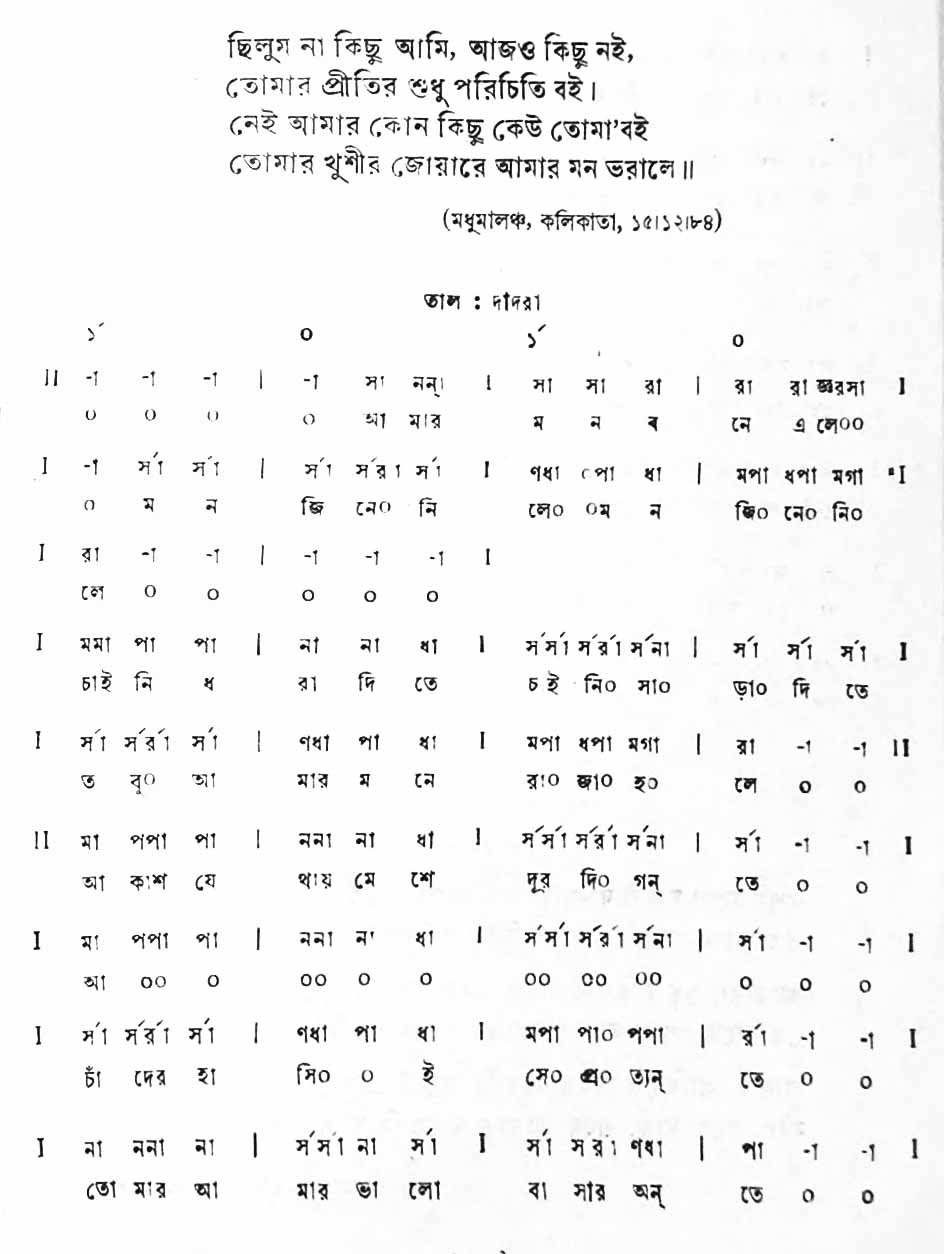 ছিলুম না কিছু আমি, আজও কিছু নই,
তোমার প্রীতির শুধু পরিচিতি বই।
নেই আমার কোন কিছু কেউ তোমা'বই
তোমার খুশীর জোয়ারে আমার মন ভরালে॥
(মধুমালঞ্চ, কলিকাতা, ১৫।১২।৮৪)
তাল : দাদরা
১´ ০ ১´ ০
II -া -া -া | -া সা নন্া I সা সা রা | রা রা জ্ঞরসা I
০ ০ ০ ০ আ মার ম ন ব নে এ লে০০
I -া র্সা র্সা | র্সা র্সরা র্সা I ণধা পো ধা | মপা ধপা মগা I
০ ম ন জি নে০ নি লে০ ০ম ন জি০ নে০ নি০
I রা -া -া | -া -া -া I
লে ০ ০ ০ ০ ০
I মমা পা পা | না না ধা I র্সর্সা র্সর্রা র্সনা | র্সা র্সা র্সা I
চাই নি ধ রা দি তে চই নি০ সা০ ড়া০ দি তে
I র্সা র্সর্রা র্সা | ণধা পা ধা I মপা ধপা মগা | রা -া -া II
ত বু০ আ মার ম নে রা০ জা০ হ০ লে ০ ০
II মা পপা পা | ননা না ধা I র্সর্সা র্সর্রা র্সনা | র্সা -া -া I
আ কাশ যে থায় মে শে দূর দি০ গন্ তে ০ ০
I মা পপা পা | ননা না ধা I র্সর্সা র্সর্রা র্সনা | র্সা -া -া I
আ ০০ ০ ০০ ০ ০ ০০ ০০ ০০ ০ ০ ০
I র্সা র্সর্রা র্সা | ণধা পা ধা I মপা পা০ পপা | র্রা -া -া I
চাঁ দের হা সি০ ০ ই সে০ প্র০ তান্ তে ০ ০
I না ননা না | র্সর্সা না র্সা I র্সা র্সরা ণধা | পা -া -া I
তো মার আ মার ভা লো বা সার অন্ তে ০ ০